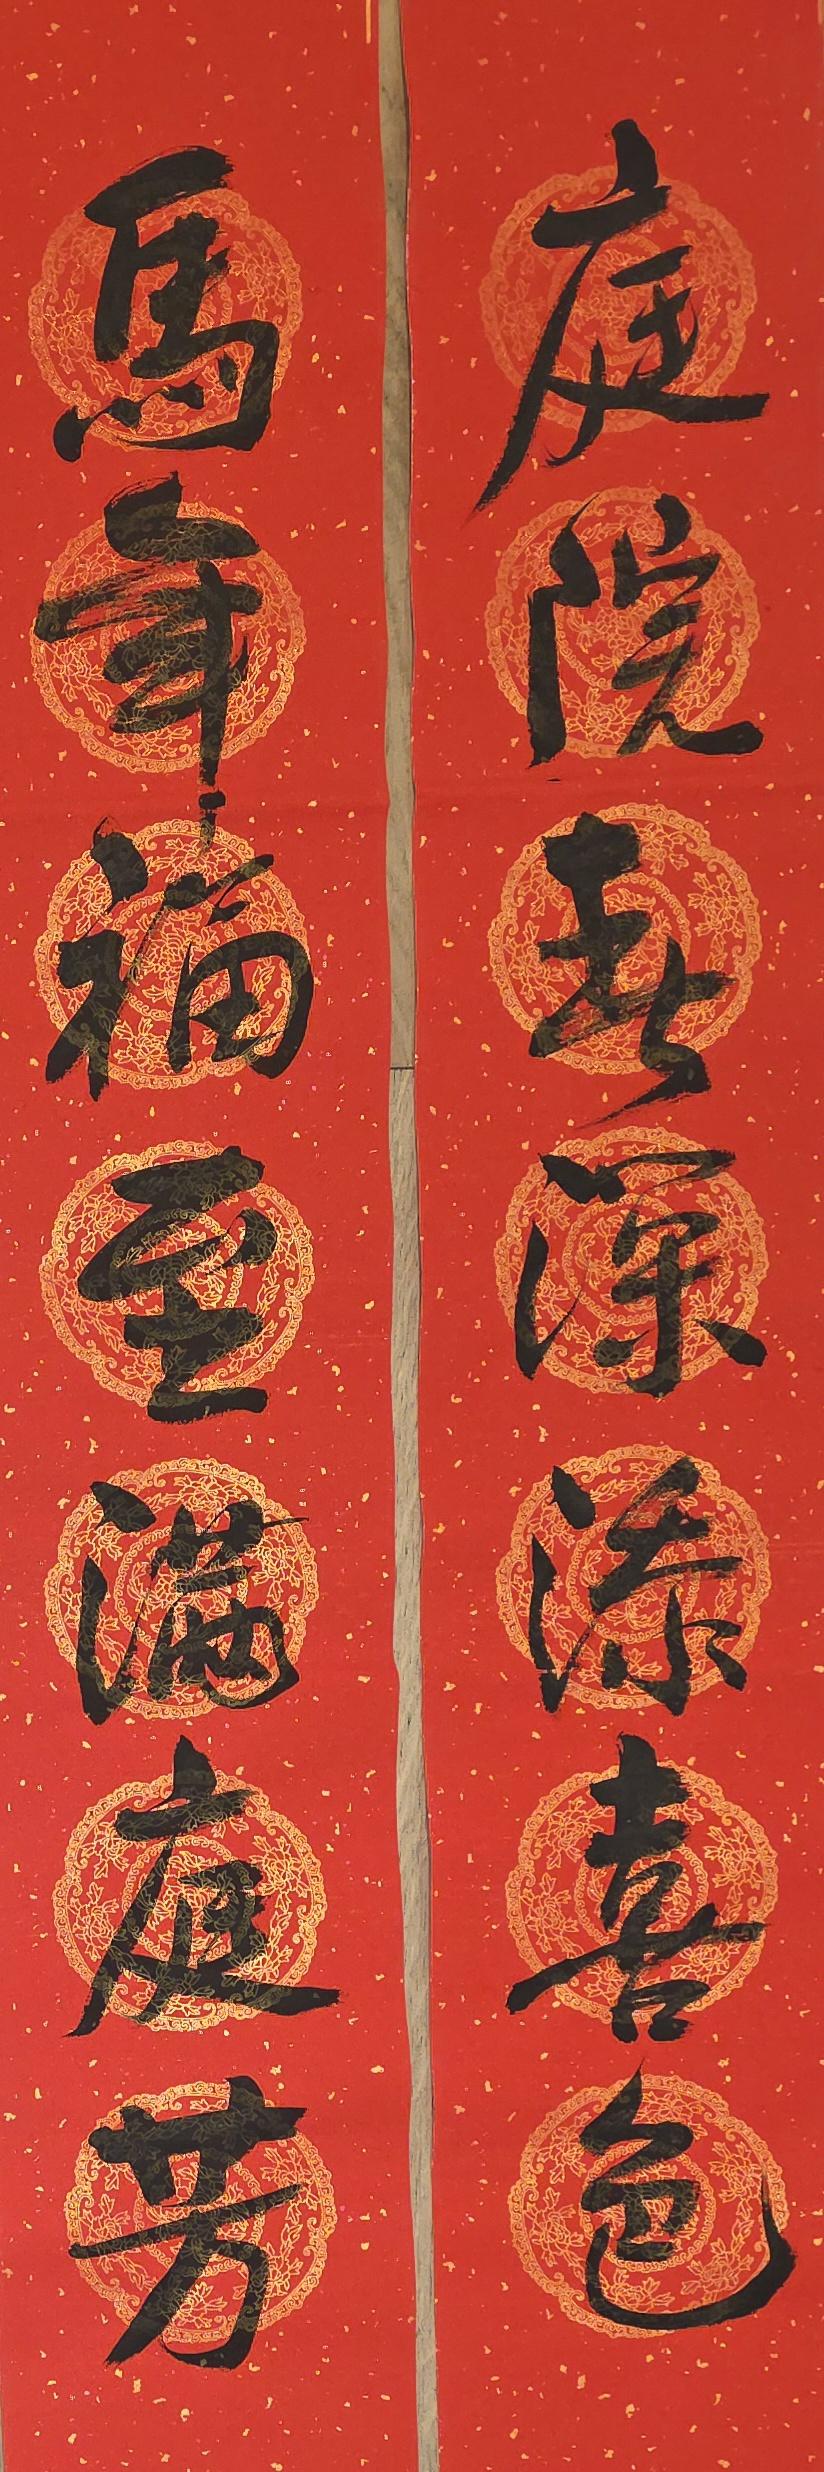 庭院春深添喜色
馬年福至满庭芳